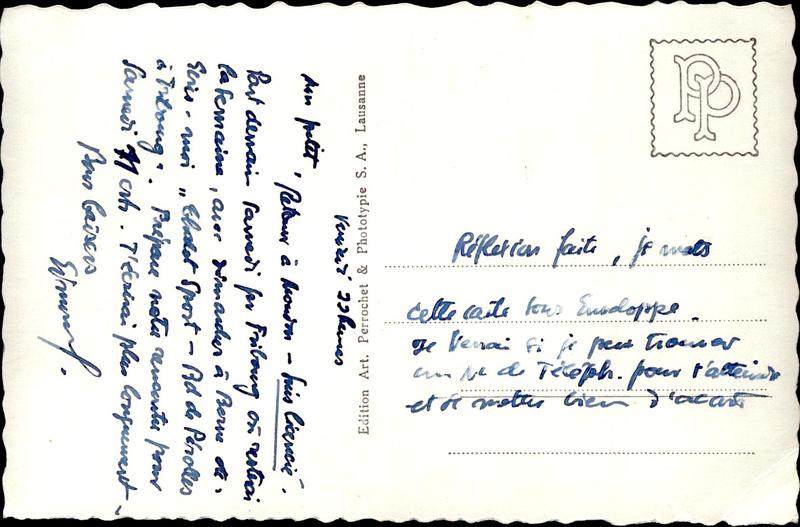 Vendredi 22 heures
Mon petit, Retour à Moudon - Suis licencié.
Part demain samedi pr Fribourg où restrai
la semaine, avec dimanche à Berne etc.
Ecris-moi "Chalet Sport - Bd de Pérolles
à Fribourg". Prépare notre rencontre pour
Samedi octr. T'écrirai plus longuement.
Bons baisers
Edition Art. Perrochet & Phototypie S. A., Lausanne
PP
Réflexion faite, je mets
cette carte sous Enveloppe.
Je verrai si je peux trouver
un No de Téléph. pour t'atteindre
et se mettre bien d'accord